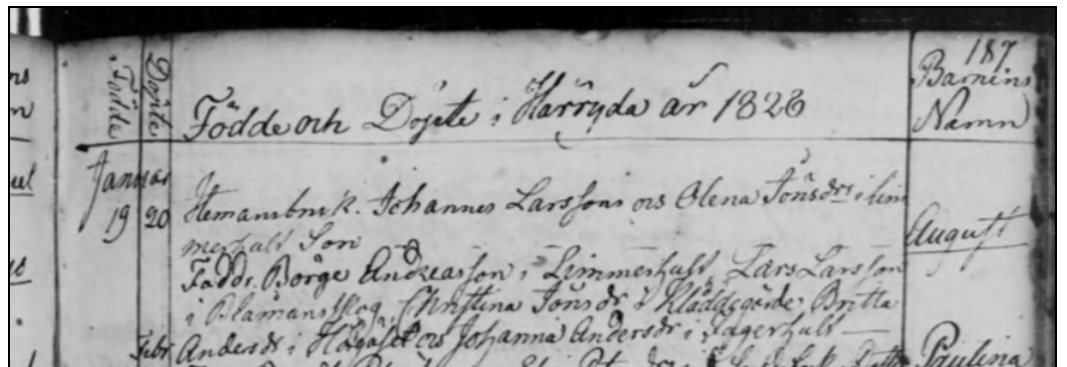 187
Födde Döpte Födde och Döpte i Härryda år 1828 Barnens Namn
Januar
19 20 Hemansbruk. Johannes Larssons os Olena Jönsdrs i Lim
merhult Son August
Fadd. Börge Andreasson i Limmerhult, Lars Larsson
i Blåmansskog, Christina Jönsdr i Kläddegärde Britta
Febr Andersdr i os Johanna Andersdr i Lagerhult —
Paulina